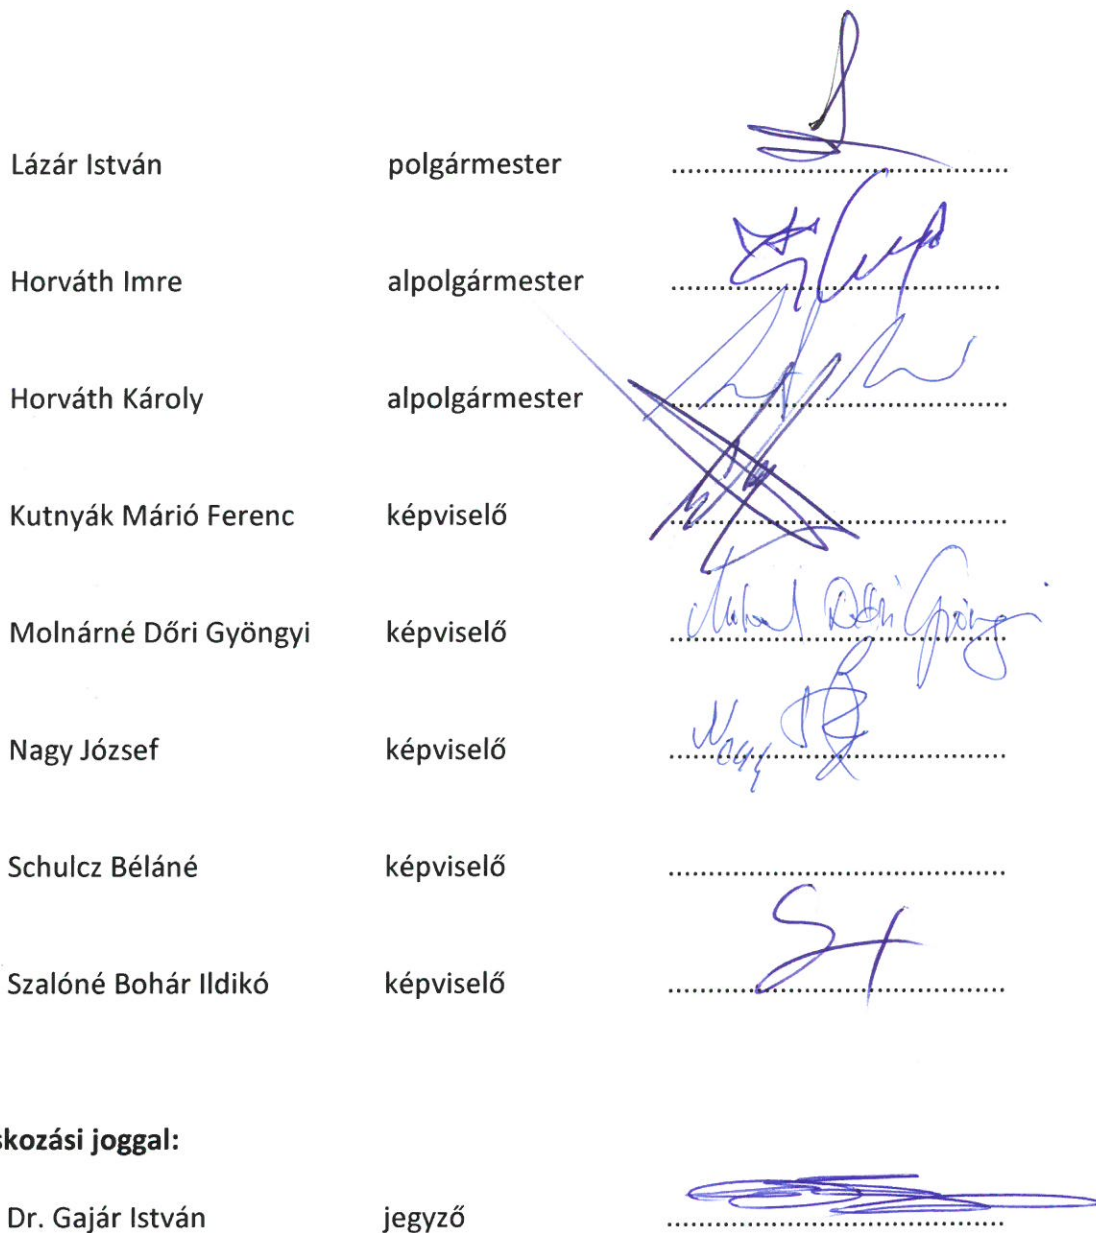 Lázár István polgármester
Horváth Imre alpolgármester
Horváth Károly alpolgármester
Kutnyák Márió Ferenc képviselő
Molnárné Dőri Gyöngyi képviselő
Nagy József képviselő Nagy
Schulcz Béláné képviselő
Szalóné Bohár Ildikó képviselő
skozási joggal:
Dr. Gajár István jegyző